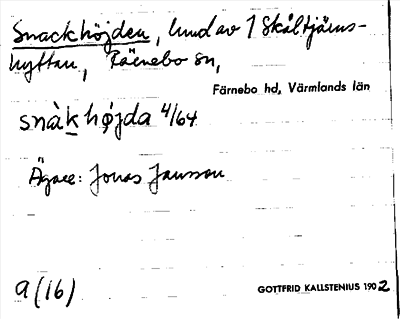 Snackhöjden, lund av 1 Skåltjärns-
hyttan, Färnebo sn,
Färnebo hd, Värmlands län
snàk højda 4/64
Ägare: Jonas Jansson
a (16)
GOTTFRID KALLSTENIUS 1902